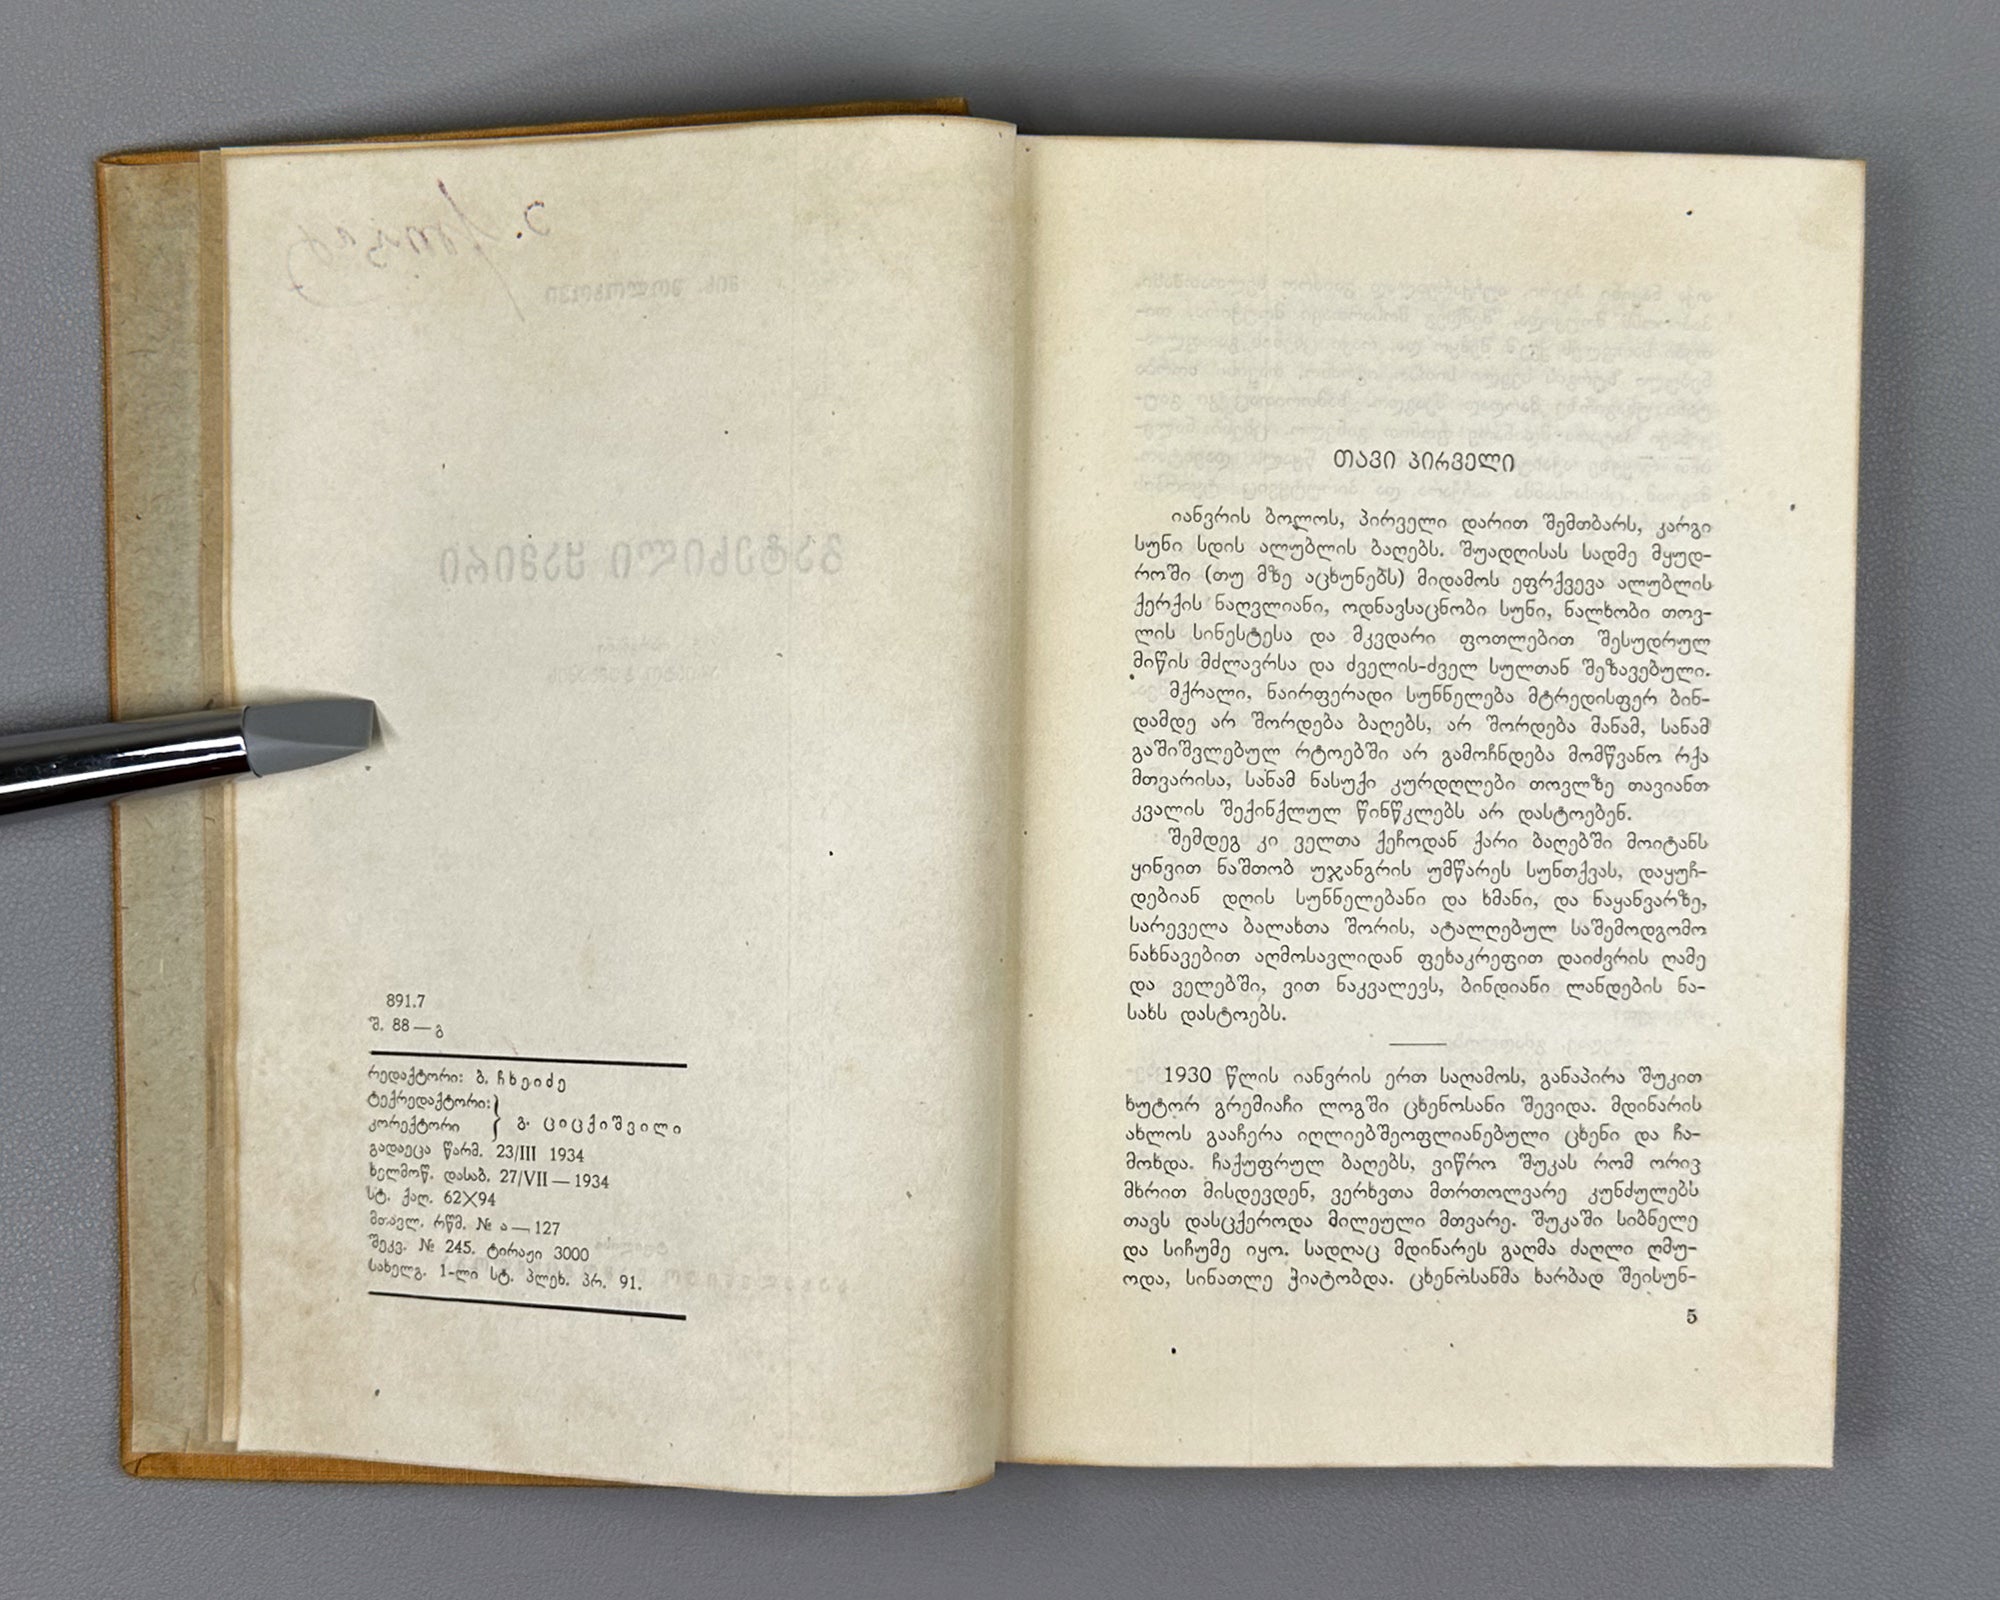 891.7
შ. 88 — გ
რედაქტორი: ბ. ჩხეიძე
ტექრედაქტორი:
კორექტორი } გ. ციცქიშვილი
გადაეცა წარმ. 23/III 1934
ხელმოწ. დასაბ. 27/VII — 1934
სტ. ქაღ. 62X94
მთავლ. რწმ. № ა — 127
შეკვ. № 245. ტირაჟი 3000
სახელგ. 1-ლი სტ. პლეხ. პრ. 91.
თავი პირველი
იანვრის ბოლოს, პირველი დარით შემთბარს, კარგი
სუნი სდის ალუბლის ბაღებს. შუადღისას სადმე მყუდ-
როში (თუ მზე აცხუნებს) მიდამოს ეფრქვევა ალუბლის
ქერქის ნაღვლიანი, ოდნავსაცნობი სუნი, ნალხობი თოვ-
ლის სინესტესა და მკვდარი ფოთლებით შესუდრულ
მიწის მძლავრსა და ძველის-ძველ სულთან შეზავებული.
მქრალი, ნაირფერადი სუნნელება მტრედისფერ ბინ-
დამდე არ შორდება ბაღებს, არ შორდება მანამ, სანამ
გაშიშვლებულ რტოებში არ გამოჩნდება მომწვანო რქა
მთვარისა, სანამ ნასუქი კურდღლები თოვლზე თავიანთ
კვალის შექინქლულ წინწკლებს არ დასტოებენ.
შემდეგ კი ველთა ქეჩოდან ქარი ბაღებში მოიტანს
ყინვით ნაშთობ უჯანგრის უმწარეს სუნთქვას, დაყუჩ-
დებიან დღის სუნნელებანი და ხმანი, და ნაყანვარზე,
სარეველა ბალახთა შორის, ატალღებულ საშემოდგომო
ნახნავებით აღმოსავლიდან ფეხაკრეფით დაიძვრის ღამე
და ველებში, ვით ნაკვალევს, ბინდიანი ლანდების ნა-
სახს დასტოებს.
1930 წლის იანვრის ერთ საღამოს, განაპირა შუკით
ხუტორ გრემიაჩი ლოგში ცხენოსანი შევიდა. მდინარის
ახლოს გააჩერა იღლიებშეოფლიანებული ცხენი და ჩა-
მოხდა. ჩაქუფრულ ბაღებს, ვიწრო შუკას რომ ორივ
მხრით მისდევდენ, ვერხვთა მთრთოლვარე კუნძულებს
თავს დასცქეროდა მილეული მთვარე. შუკაში სიბნელე
და სიჩუმე იყო. სადღაც მდინარეს გაღმა ძაღლი ღმუ-
ოდა, სინათლე ჭიატობდა. ცხენოსანმა ხარბად შეისუნ-
5